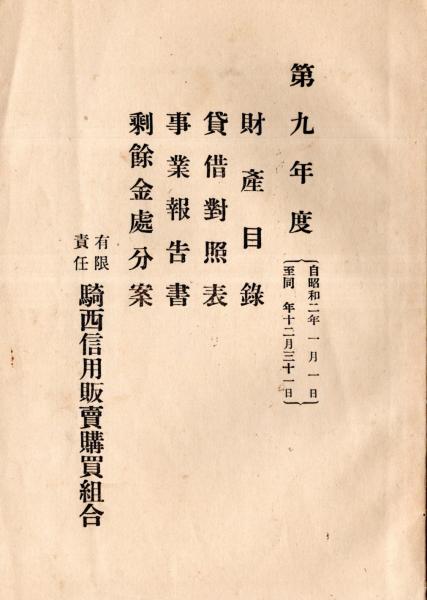 第九年度
自昭和二年一月一日
至同年十二月三十一日
財產目錄
貸借對照表
事業報告書
剩餘金處分案
有限
責任
騎西信用販賣購買組合